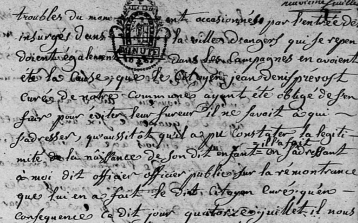 troubles du mom ent occasionnés par l'entrée de
insurgés dans la ville d'angers qui se repen
doient également dans les campagnes en avoient
eté la cause, que le Citoyen jean denis prevost
curé de notre commune ayant été obligé de s'en
fuir pour eviter leur fureur il ne savoit à qui
s'adresser, qu'aussitot qu'il a pu constater la légiti
mité de la naissance de son dit enfant il l'a fait en s'adressant
a moi dit officier officier public sur la remontrance
que lui en a fait le dit Citoyen Curé qu'en
consequence ce dit jour quatorze juillet, il nous